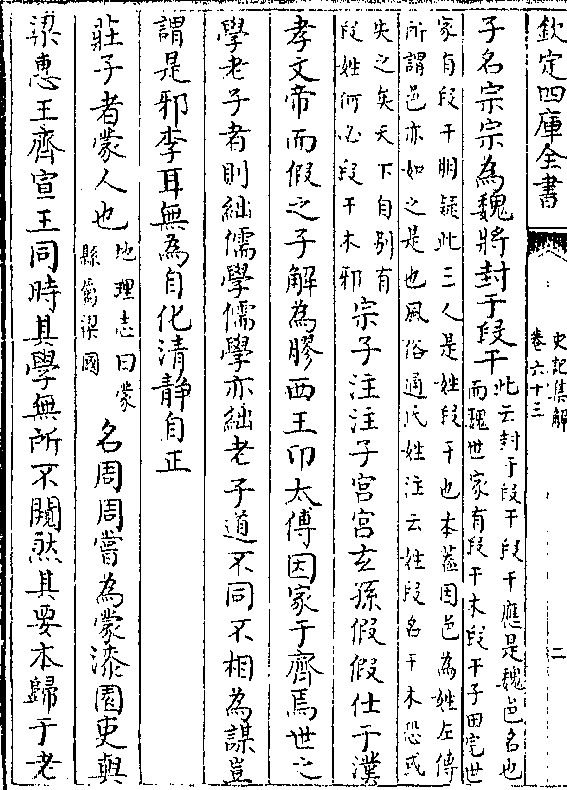 欽定四庫全書
史記集解
卷六十三
二
子名宗宗為魏將封于段干此云封于段干段干應是魏邑名也
而魏世家有段干木段干子田完世
家有段干朋疑此三人是姓段干也本蓋因邑為姓左傳
所謂邑亦如之是也風俗通氏姓注云姓段名干木恐或
失之矣天下自別有
段姓何必段干木邪宗子注注子宫宫玄孫假假仕于漢
孝文帝而假之子解為膠西王卬太傅因家于齊焉世之
學老子者則絀儒學儒學亦絀老子道不同不相為謀豈
謂是邪李耳無為自化清静自正
莊子者蒙人也地理志曰蒙
縣屬梁國名周周嘗為蒙漆園吏與
梁惠王齊宣王同時其學無所不闚然其要本歸于老